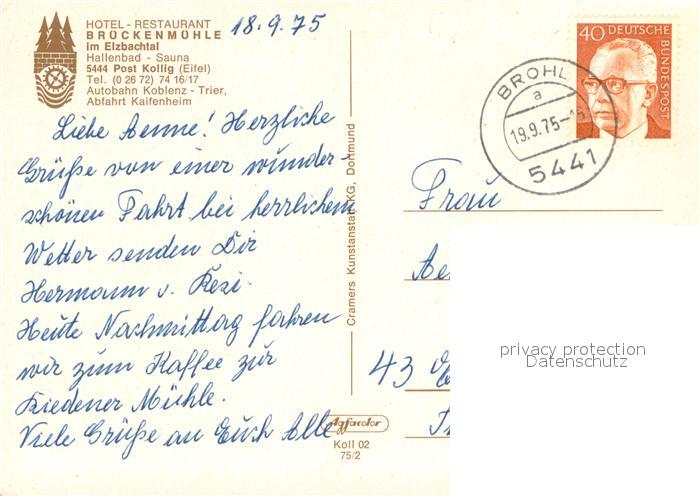 HOTEL - RESTAURANT
BRÜCKENMÜHLE
im Elzbachtal
Hallenbad - Sauna
5444 Post Kollig (Eifel)
Tel. (0 26 72) 74 16/17
Autobahn Koblenz - Trier,
Abfahrt Kaifenheim
18.9.75
Liebe Aenne! Herzliche
Grüße von einer wunder-
schönen Fahrt bei herrlichem
Wetter senden Dir
Hermann u. Resi.
Heute Nachmittag fahren
wir zum Kaffee zur
Riedener Mühle.
Viele Grüße an Euch Alle
Cramers Kunstanstalt KG, Dortmund
Agfacolor
Koll 02
75/2
40 DEUTSCHE
BUNDESPOST
BROHL
a
19.9.75-
5441
Frau
Ae
43
privacy protection
Datenschutz